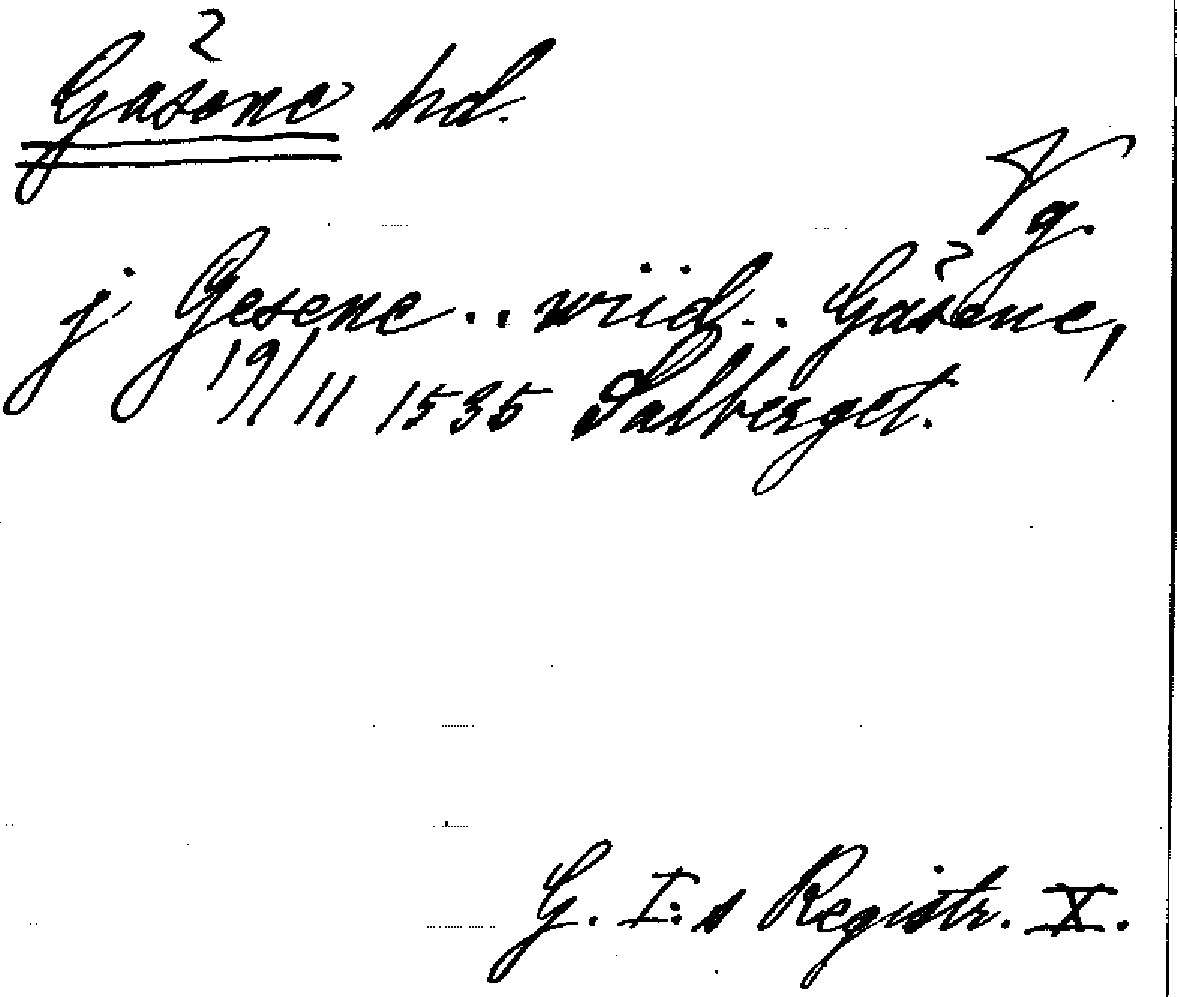 Gåsene hd.
Vg.
j Gesene .. wiid .. Gåsene,
19/11 1535 Salberget.
G. I:s Registr. X.